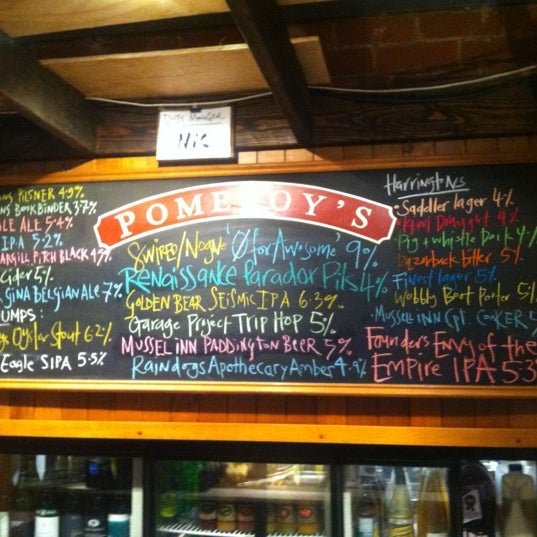 Duty Manager
Nic
POMEROY'S
PILSNER 4.9%
BOOKBINDER 3.7%
ALE 5.4%
IPA 5.2%
PITCH BLACK 4.5%
Cider 5%
GINA BELGIAN ALE 7%
UMPS:
Oyster Stout 6.2%
Eagle SIPA 5.5%
8 WIRED/NØGNE 'Ø for Awesome' 9%
RENAISSANCE Paradox Pils 4%
GOLDEN BEAR SEISMIC IPA 6.3%
Garage Project TRIP HOP 5%
MUSSEL INN PADDINGTON BEER 5%
RAINdogs Apothecary Amber 4.9%
Harringtons
• Saddler lager 4%
Draught 4%
Pig + whistle Dark 4%
Razorback bitter 5%
Finest lager 5%
Wobbly Boot Porter 5%
- MUSSEL INN CPT COOKER
Founders Envy of the
Empire IPA 5.3